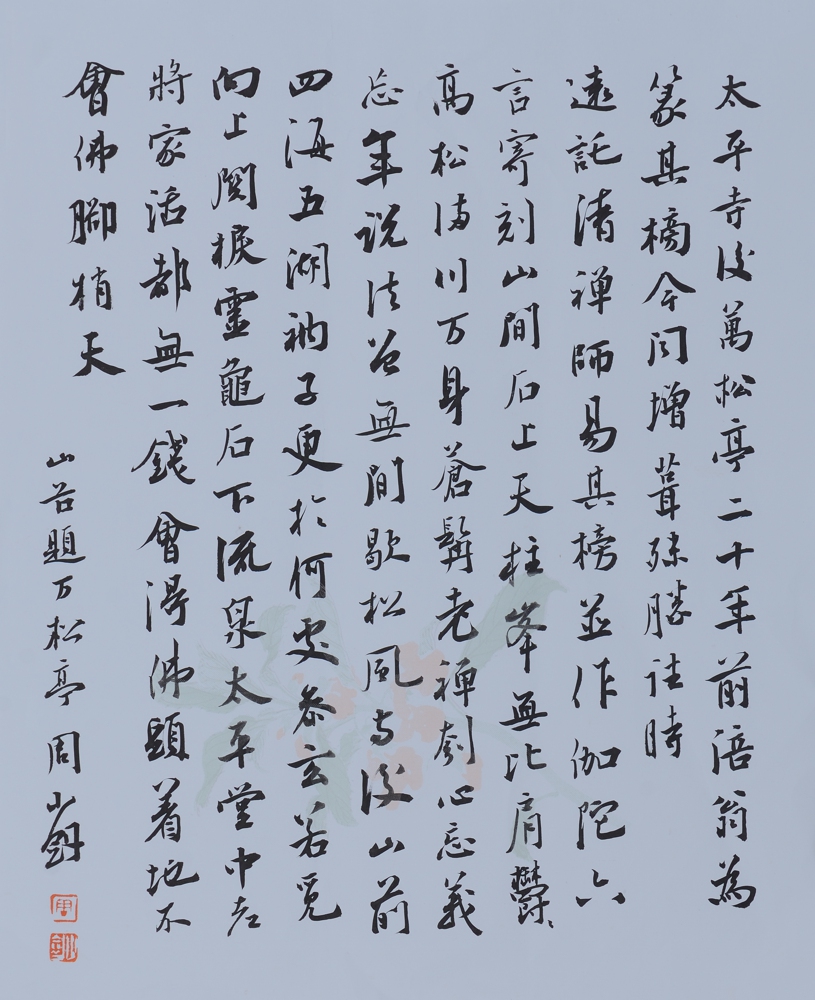 太平寺後萬松亭二十年前涪翁為
篆其榜今聞增葺殊勝往時
遠託清禪師易其榜並作伽陀六
言寄刻山間石上天柱峯無比肩鬱〻
高松滿川万身蒼髯老禪刳心忘義
忘年說法曾無間歇松風與後山前
四海五湖衲子更於何處參玄若覓
向上關捩靈龜石下流泉太平堂中老
將家活都無一錢會得佛頭着地不
會佛腳梢天
山谷題万松亭 周